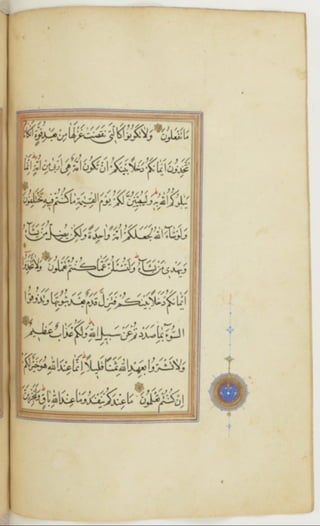 مَا تَفْعَلُونَ وَلَا تَكُونُوا كَالَّتِي نَقَضَتْ غَزْلَهَا مِنْ بَعْدِ قُوَّةٍ اَنْكَاثًا
تَتَّخِذُونَ اَيْمَانَكُمْ دَخَلًا بَيْنَكُمْ اَنْ تَكُونَ اُمَّةٌ هِيَ اَرْبَى مِنْ اُمَّةٍ اِنَّمَا
يَبْلُوكُمُ اللَّهُ بِهِ وَلَيُبَيِّنَنَّ لَكُمْ يَوْمَ الْقِيٰمَةِ مَا كُنْتُمْ فِيهِ تَخْتَلِفُونَ
وَلَوْ شَاءَ اللَّهُ لَجَعَلَكُمْ اُمَّةً وَاحِدَةً وَلٰكِنْ يُضِلُّ مَنْ يَشَاءُ
وَيَهْدِي مَنْ يَشَاءُ وَلَتُسْئَلُنَّ عَمَّا كُنْتُمْ تَعْمَلُونَ وَلَا تَتَّخِذُوا
اَيْمَانَكُمْ دَخَلًا بَيْنَكُمْ فَتَزِلَّ قَدَمٌ بَعْدَ ثُبُوتِهَا وَتَذُوقُوا
السُّوءَ بِمَا صَدَدْتُمْ عَنْ سَبِيلِ اللَّهِ وَلَكُمْ عَذَابٌ عَظِيمٌ
وَلَا تَشْتَرُوا بِعَهْدِ اللَّهِ ثَمَنًا قَلِيلًا اِنَّمَا عِنْدَ اللَّهِ هُوَ خَيْرٌ لَكُمْ
اِنْ كُنْتُمْ تَعْلَمُونَ مَا عِنْدَكُمْ يَنْفَدُ وَمَا عِنْدَ اللَّهِ بَاقٍ وَلَنَجْزِيَنَّ